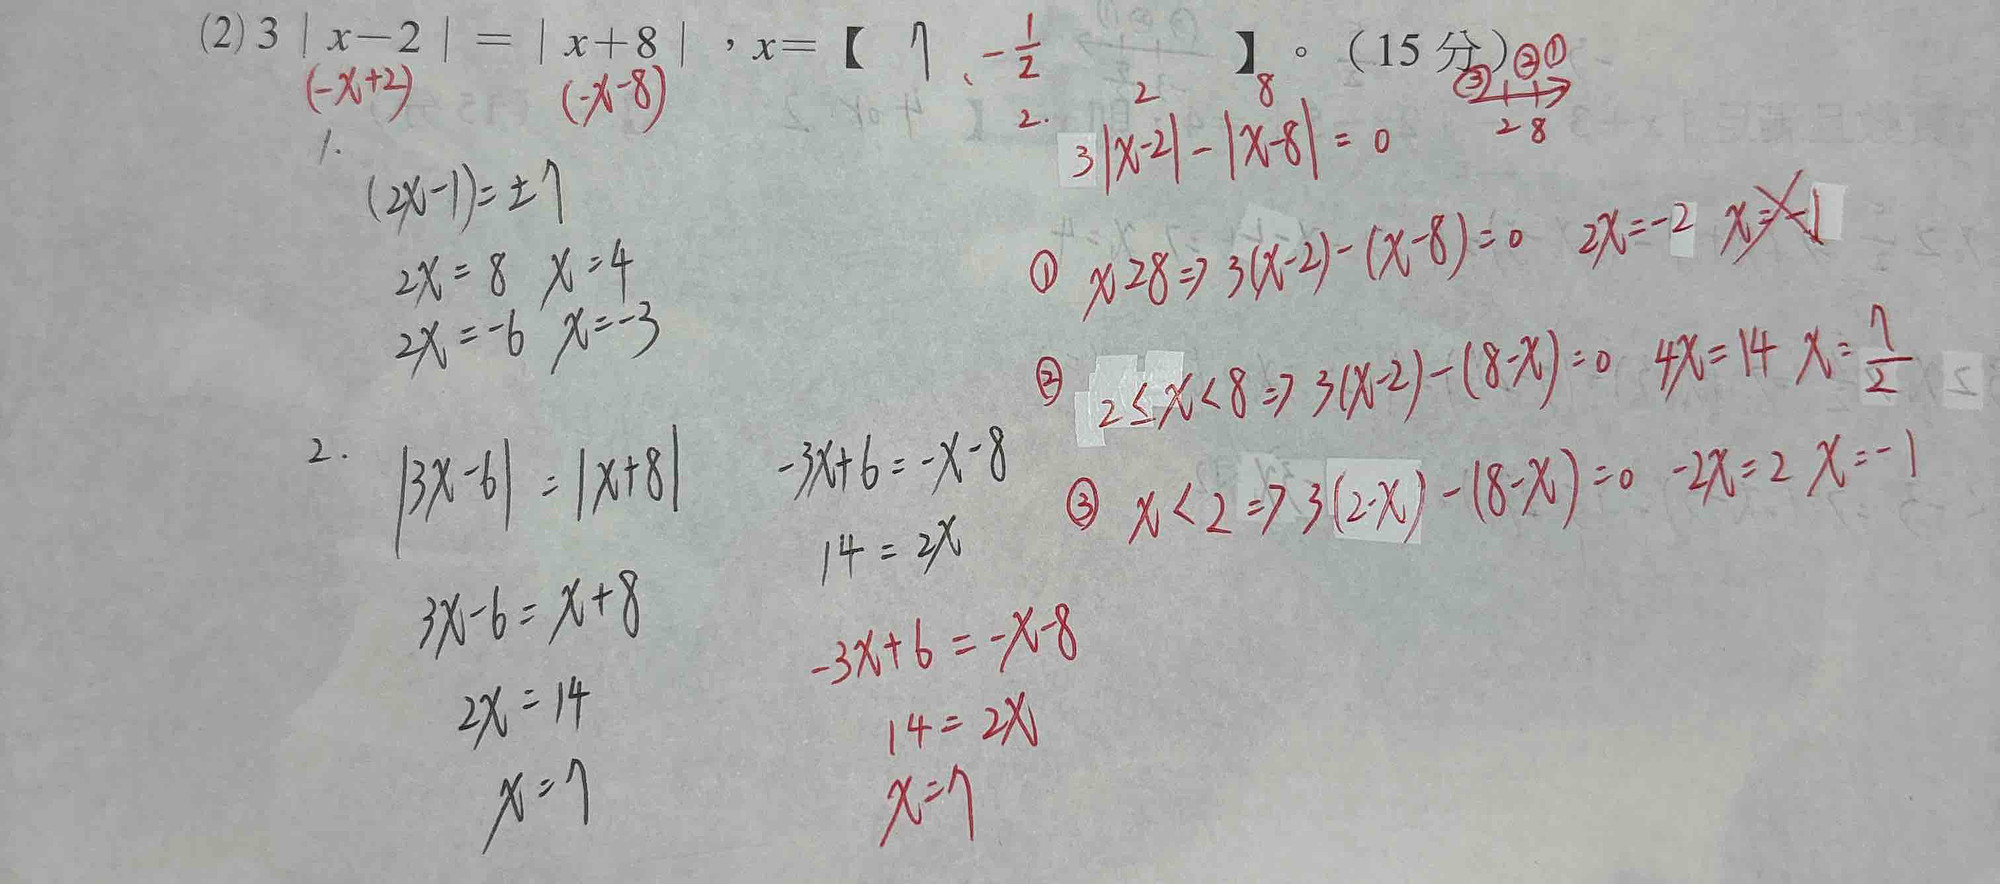 (2) 3 | x－2 | ＝ | x＋8 | ，x＝【 7 、 -1/2 】。(15 分)
(-x+2) (-x-8)
③ ② ①
2 8
1.
(2x-1)=±7
2x=8 x=4
2x=-6 x=-3
2. |3x-6| = |x+8|
3x-6=x+8
2x=14
x=7
-3x+6=-x-8
14=2x
-3x+6=-x-8
14=2x
x=7
2 8
2. 3|x-2|-|x-8|=0
① x≥8⇒3(x-2)-(x-8)=0 2x=-2 x=-1
② 2≤x<8⇒3(x-2)-(8-x)=0 4x=14 x=7/2
③ x<2⇒3(2-x)-(8-x)=0 -2x=2 x=-1